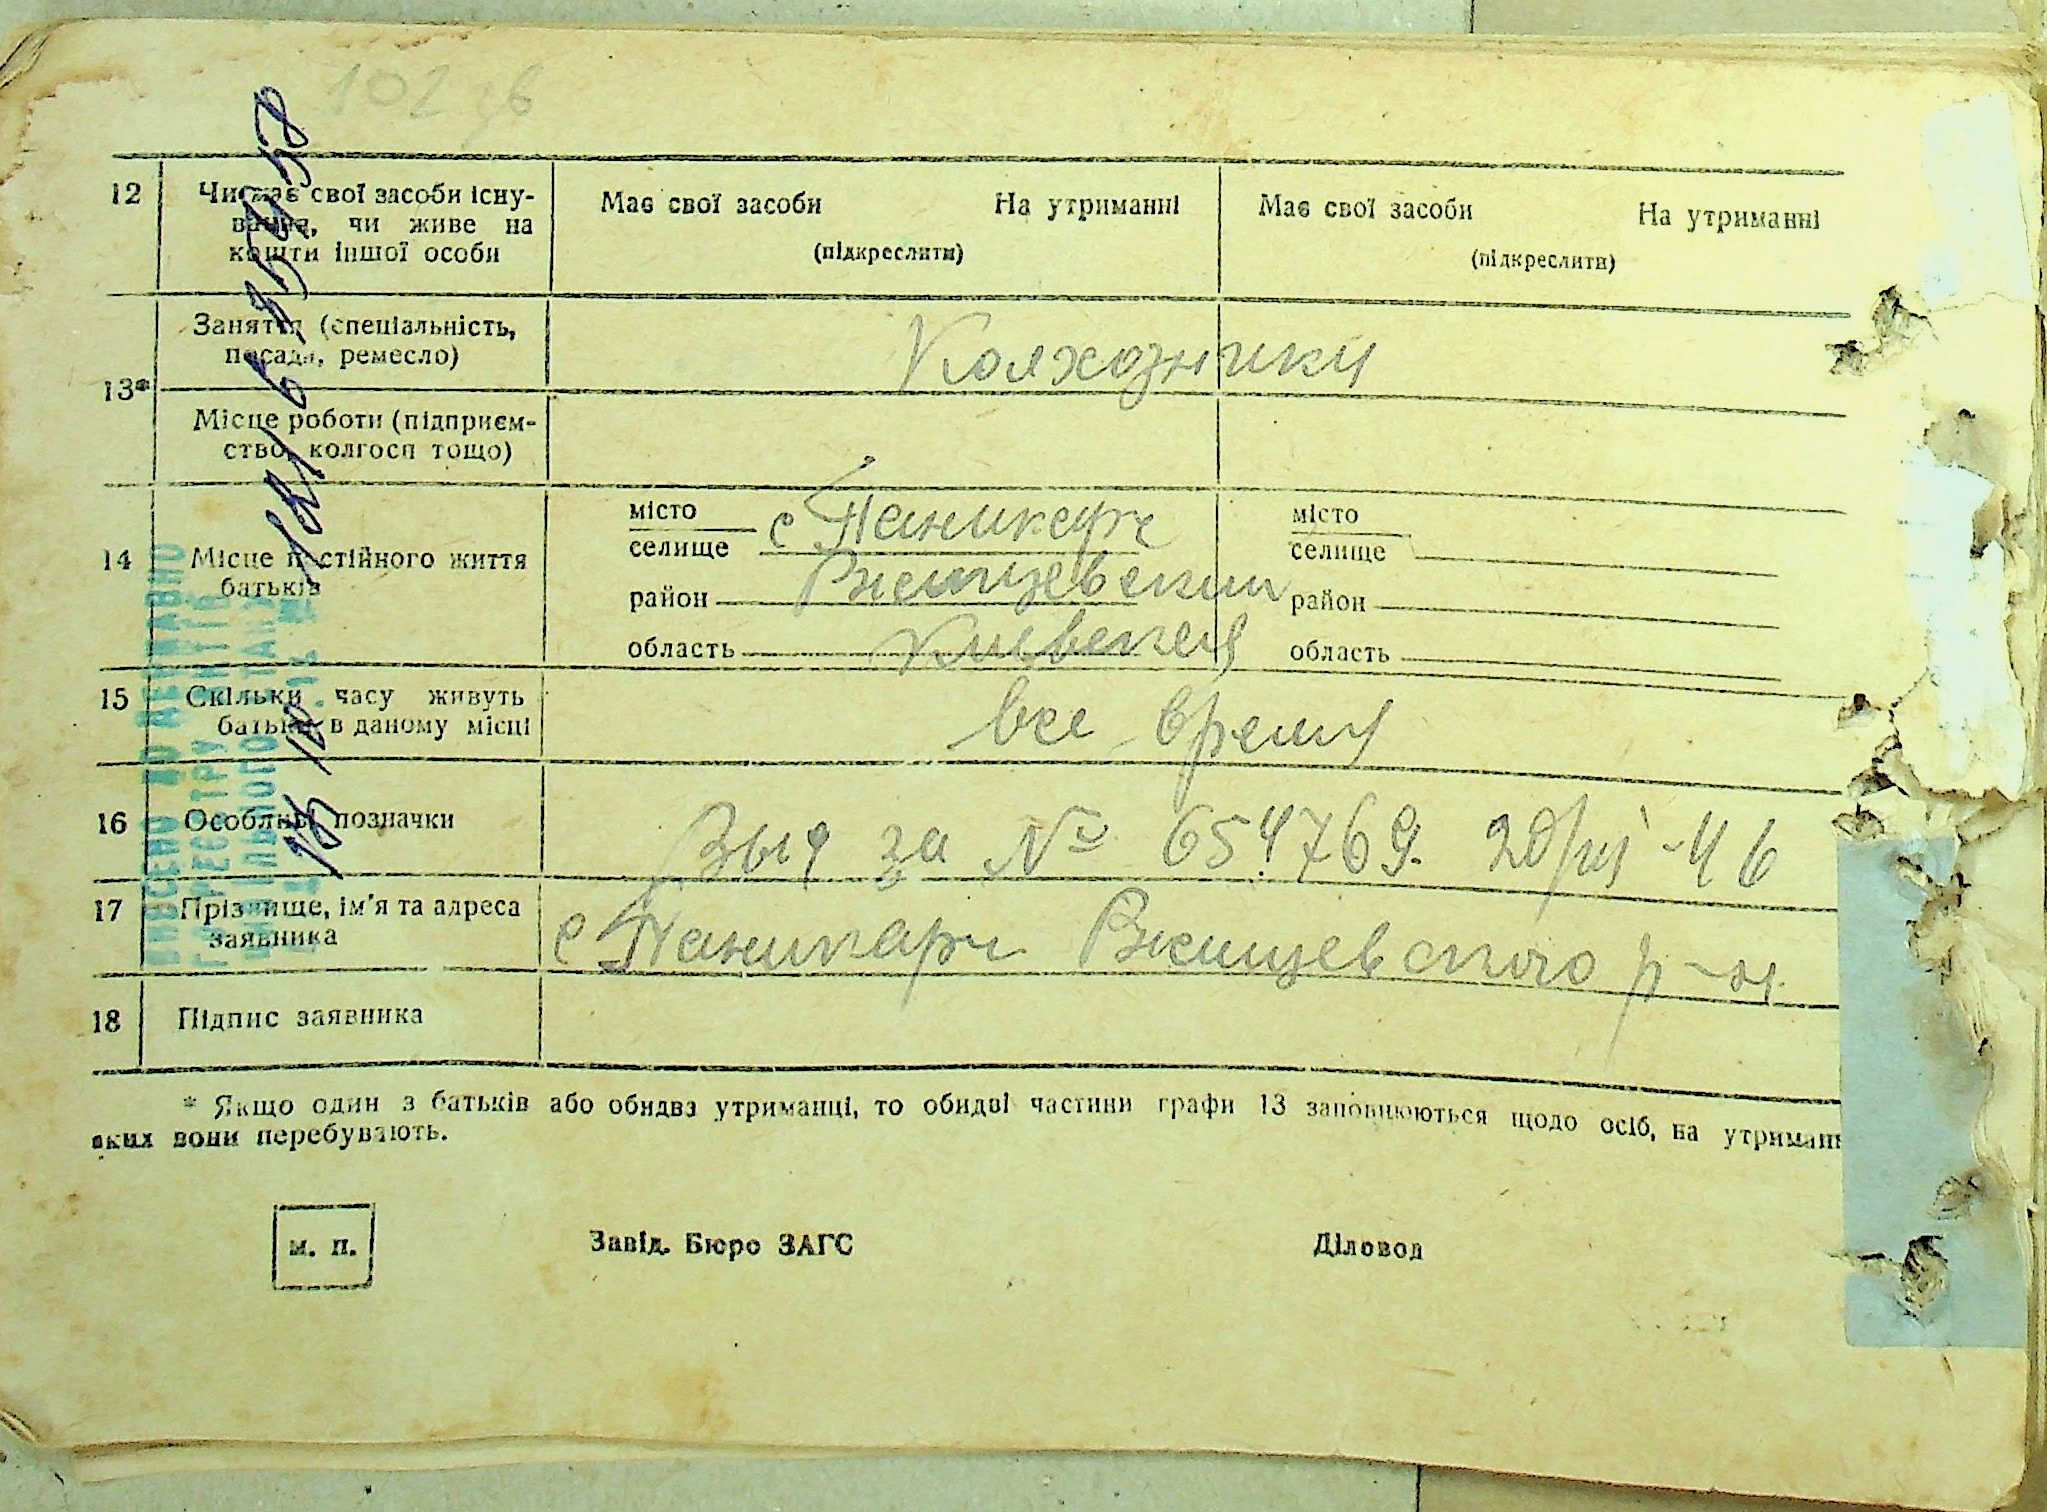 102 зв
12 Чи має свої засоби існу-
вання, чи живе на
кошти іншої особи
Має свої засоби На утриманні
(підкреслити)
Має свої засоби На утриманні
(підкреслити)
13*
Заняття (спеціальність,
посада, ремесло)
Колхозники
Місце роботи (підприєм-
ство, колгосп тощо)
14 Місце постійного життя
батьків
місто
селище
с Паникарч
район Ржищевский
область Киевская
місто
селище
район
область
15 Скільки часу живуть
батьки в даному місці
все время
16 Особливі позначки
Выд за № 654769. 20/VII-46
17 Прізвище, ім'я та адреса
заявника
с Паникарч Ржищевского р-н.
18 Підпис заявника
* Якщо один з батьків або обидва утриманці, то обидві частини графи 13 заповнюються щодо осіб, на утриманн
яких вони перебувають.
м. п.
Завід. Бюро ЗАГС
Діловод
ВНЕСЕНО ДО ДЕРЖАВНО
ГО РЕЄСТРУ АКТІВ
ЦИВІЛЬНОГО СТАНУ